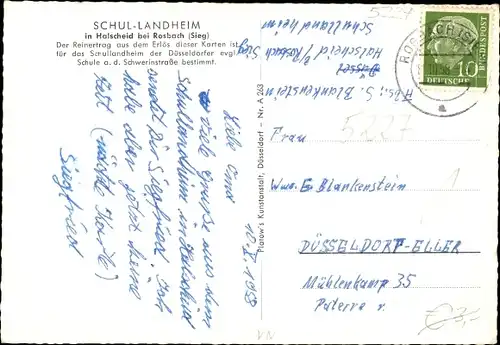 SCHUL-LANDHEIM
in Halscheid bei Rosbach (Sieg)
Der Reinertrag aus dem Erlös dieser Karten ist
für das Schullandheim der Düsseldorfer evgl.
Schule a. d. Schwerinstraße bestimmt.
12. X. 1958
Liebe Oma
viele Grüße aus dem
Schullandheim in Halscheid
sendet Dir Siegfried. Ich
habe aber jetzt keine
Zeit (nächste Karte)
Siegfried
Platow's Kunstanstalt, Düsseldorf - Nr. A 263
Abs. S. Blankenstein
Halscheid b/Rosbach Sieg
Schullandheim
ROSBACH (SIEG)
a
DEUTSCHE BUNDESPOST
10
5227
5227
Frau
Wwe. E. Blankenstein
1
DÜSSELDORF-ELLER
Mühlenkamp 35
Paterre r.
€ 3,-
VN